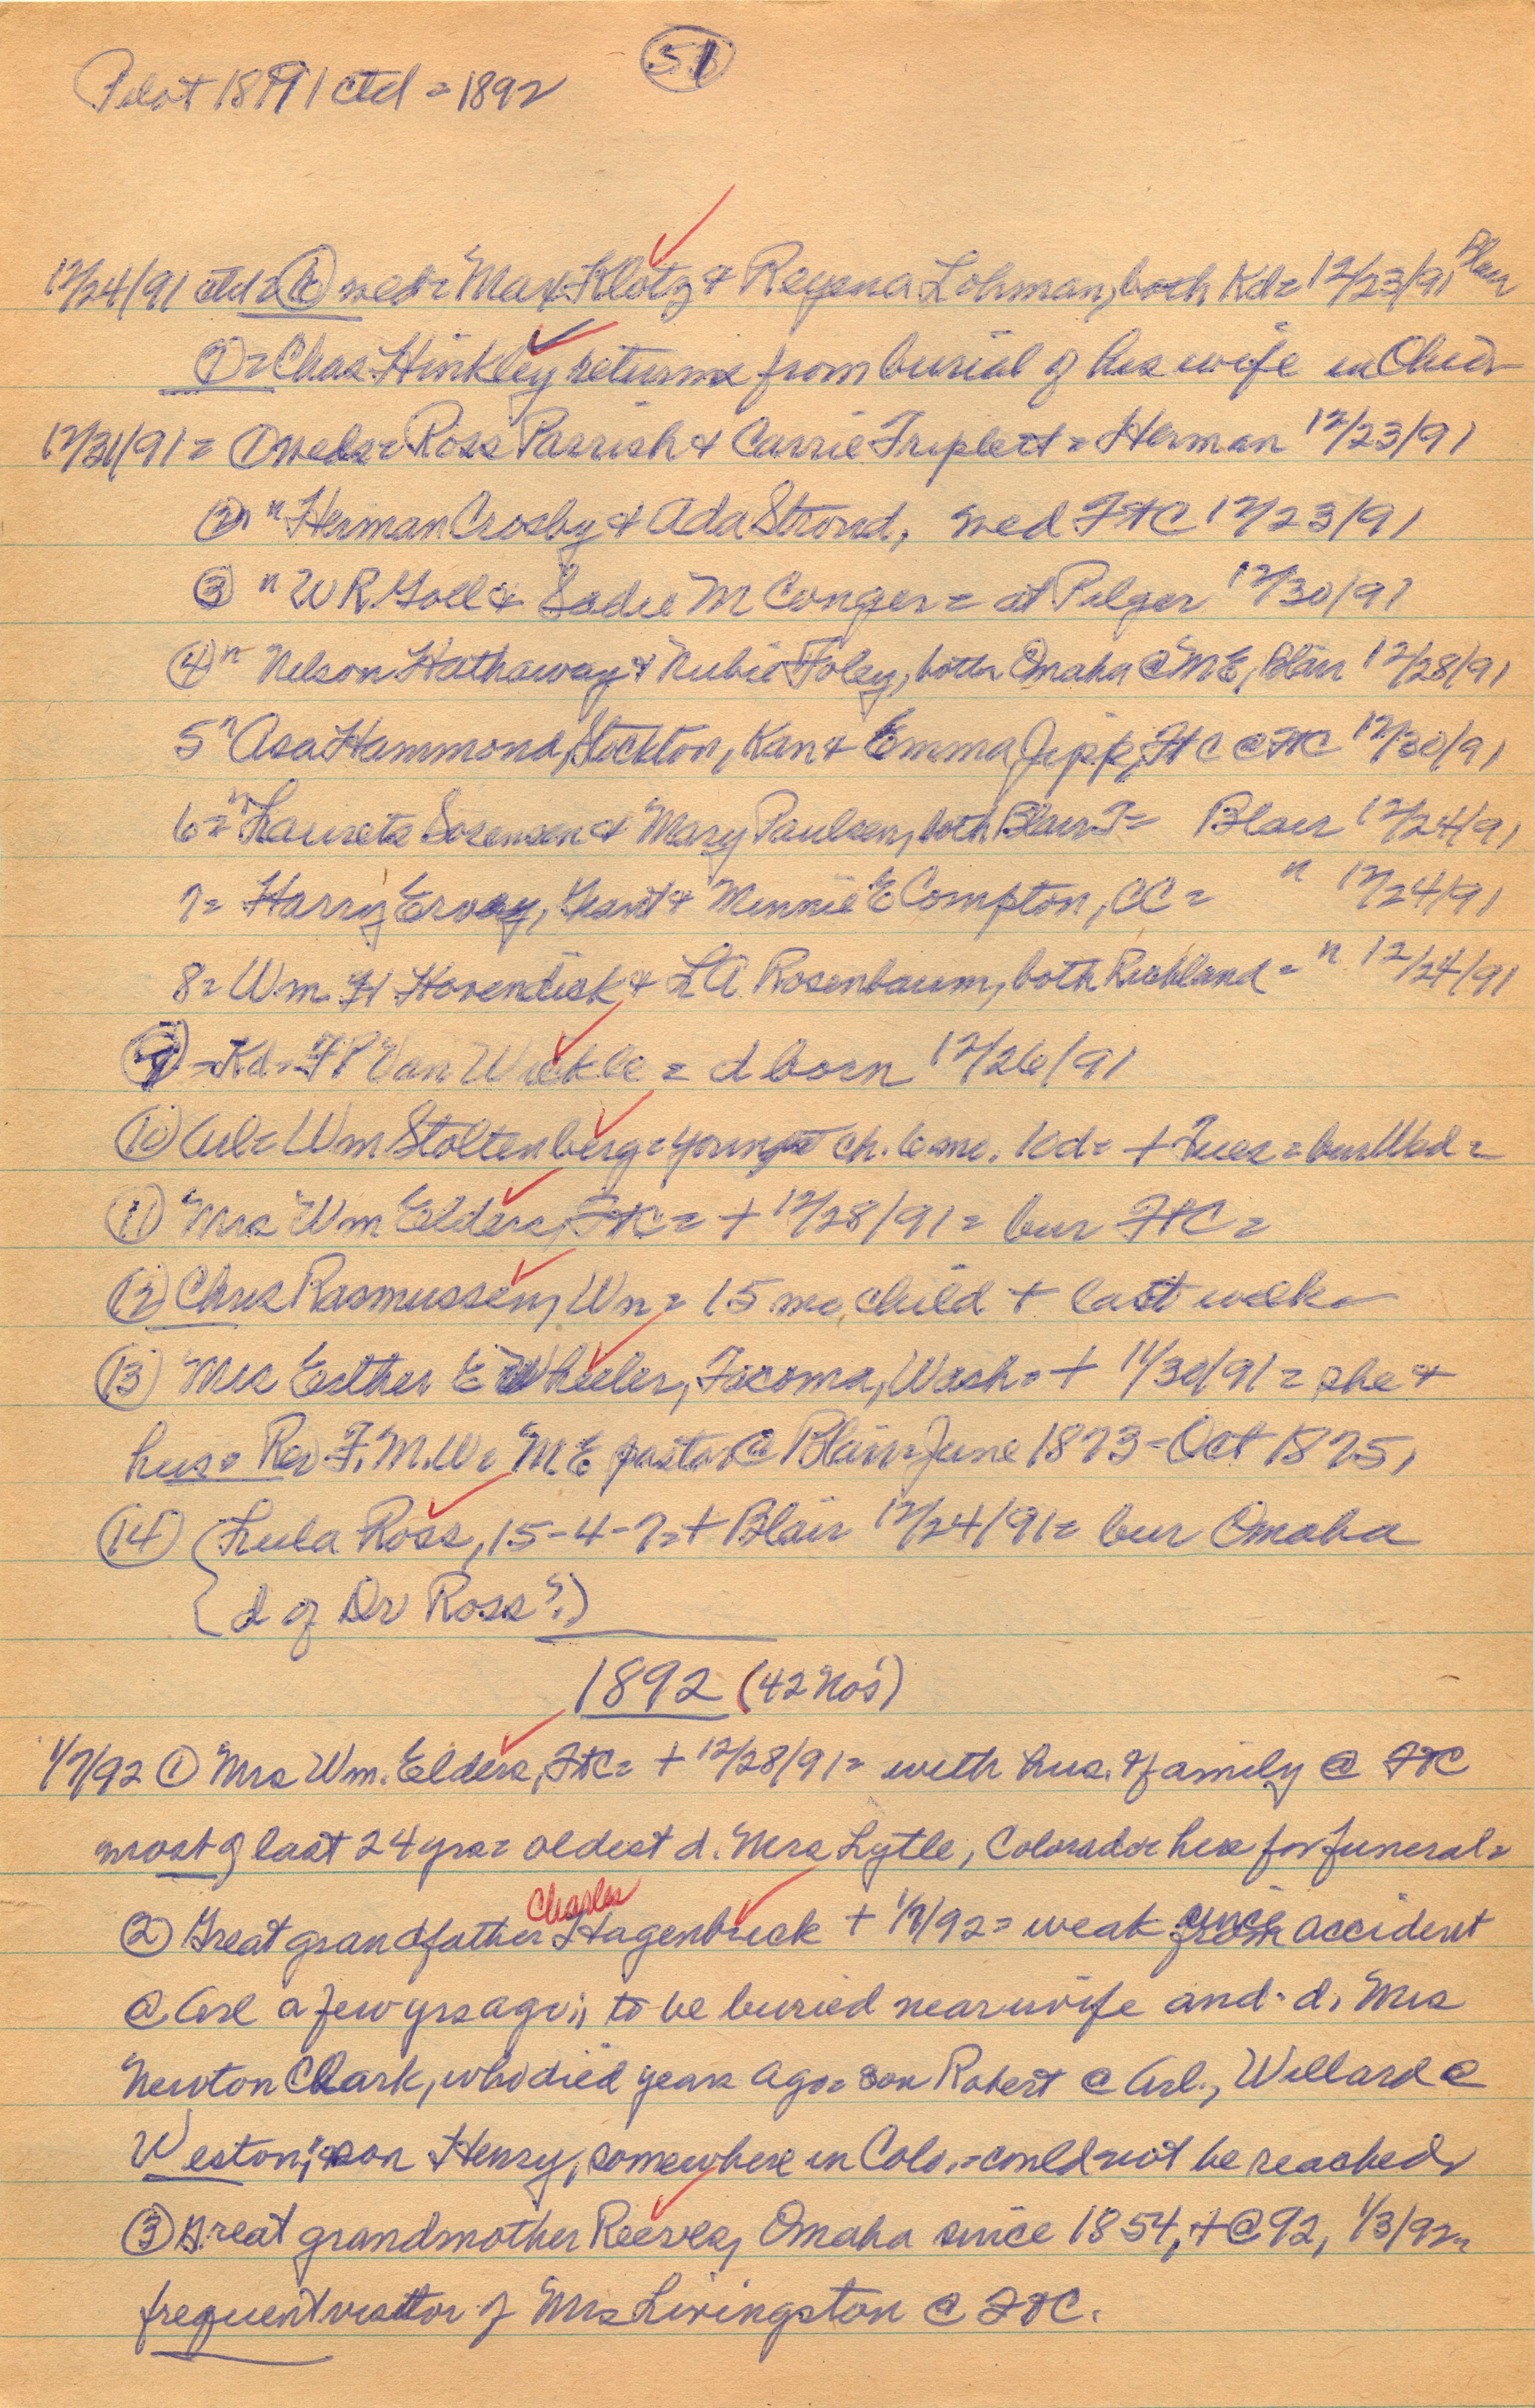 51
Pilot 1891 ctd = 1892
12/24/91 ctd = 6 wed = Max Klotz & Regena Lohman, both Kd = 12/23/91 Blair
7 = Chas Hinkley returns from burial of his wife in Ohio
12/31/91 = 1 weds = Ross Parrish & Carrie Triplett = Herman 12/23/91
2 " Herman Crosby & Ada Stroud, wed FtC 12/23/91
3 " W R Goll & Sadie M Conger = at Pilger 12/30/91
4 " Nelson Hathaway & Rubie Foley, both Omaha @ ME, Blair 12/28/91
5 " Asa Hammond, Stockton, Kan & Emma Jipp, FtC @ FtC 12/30/91
6 = " Laurets Sorensen & Mary Paulsen, both Blair? = Blair 12/24/91
7 = Harry Ervay, Grant & Minnie E Compton, CC = " 12/24/91
8 = Wm H Hovendick & L A Rosenbaum, both Richland = " 12/24/91
9 = Kd = F P Van Wickle = d born 12/26/91
10 Arl = Wm Stoltenberg = youngst ch. 6 mo. Kd = + Tues = bur Wed =
11 Mrs Wm Elders, FtC = + 12/28/91 = bur FtC =
12 Chris Rasmussen, Wn = 15 mo. child + last week
13 Mrs Esther E Wheeler, Tacoma, Wash = + 11/30/91 = she &
hus = Rev F. M. W = M E pastor @ Blair June 1873 - Oct 1875,
14 { Lula Ross, 15-4-7 = + Blair 12/24/91 = bur Omaha
{ d of Dr Ross?)
1892 (42 Nos)
1/7/92 1 Mrs Wm. Elders, FtC = + 12/28/91 = with hus. & family @ FtC
most of last 24 yrs = oldest d. Mrs Lytle, Colorado = here for funeral =
Charles
2 Great grandfather Hagenbuck + 1/7/92 = weak since from accident
@ Arl a few yrs ago; to be buried near wife and d, Mrs
Newton Clark, who died years ago = son Robert @ Arl., Willard @
Weston; son Henry, somewhere in Colo. = could not be reached
3 Great grandmother Reeves, Omaha since 1854, + @ 92, 1/3/92 =
frequent visitor of Mrs Livingston @ FtC.